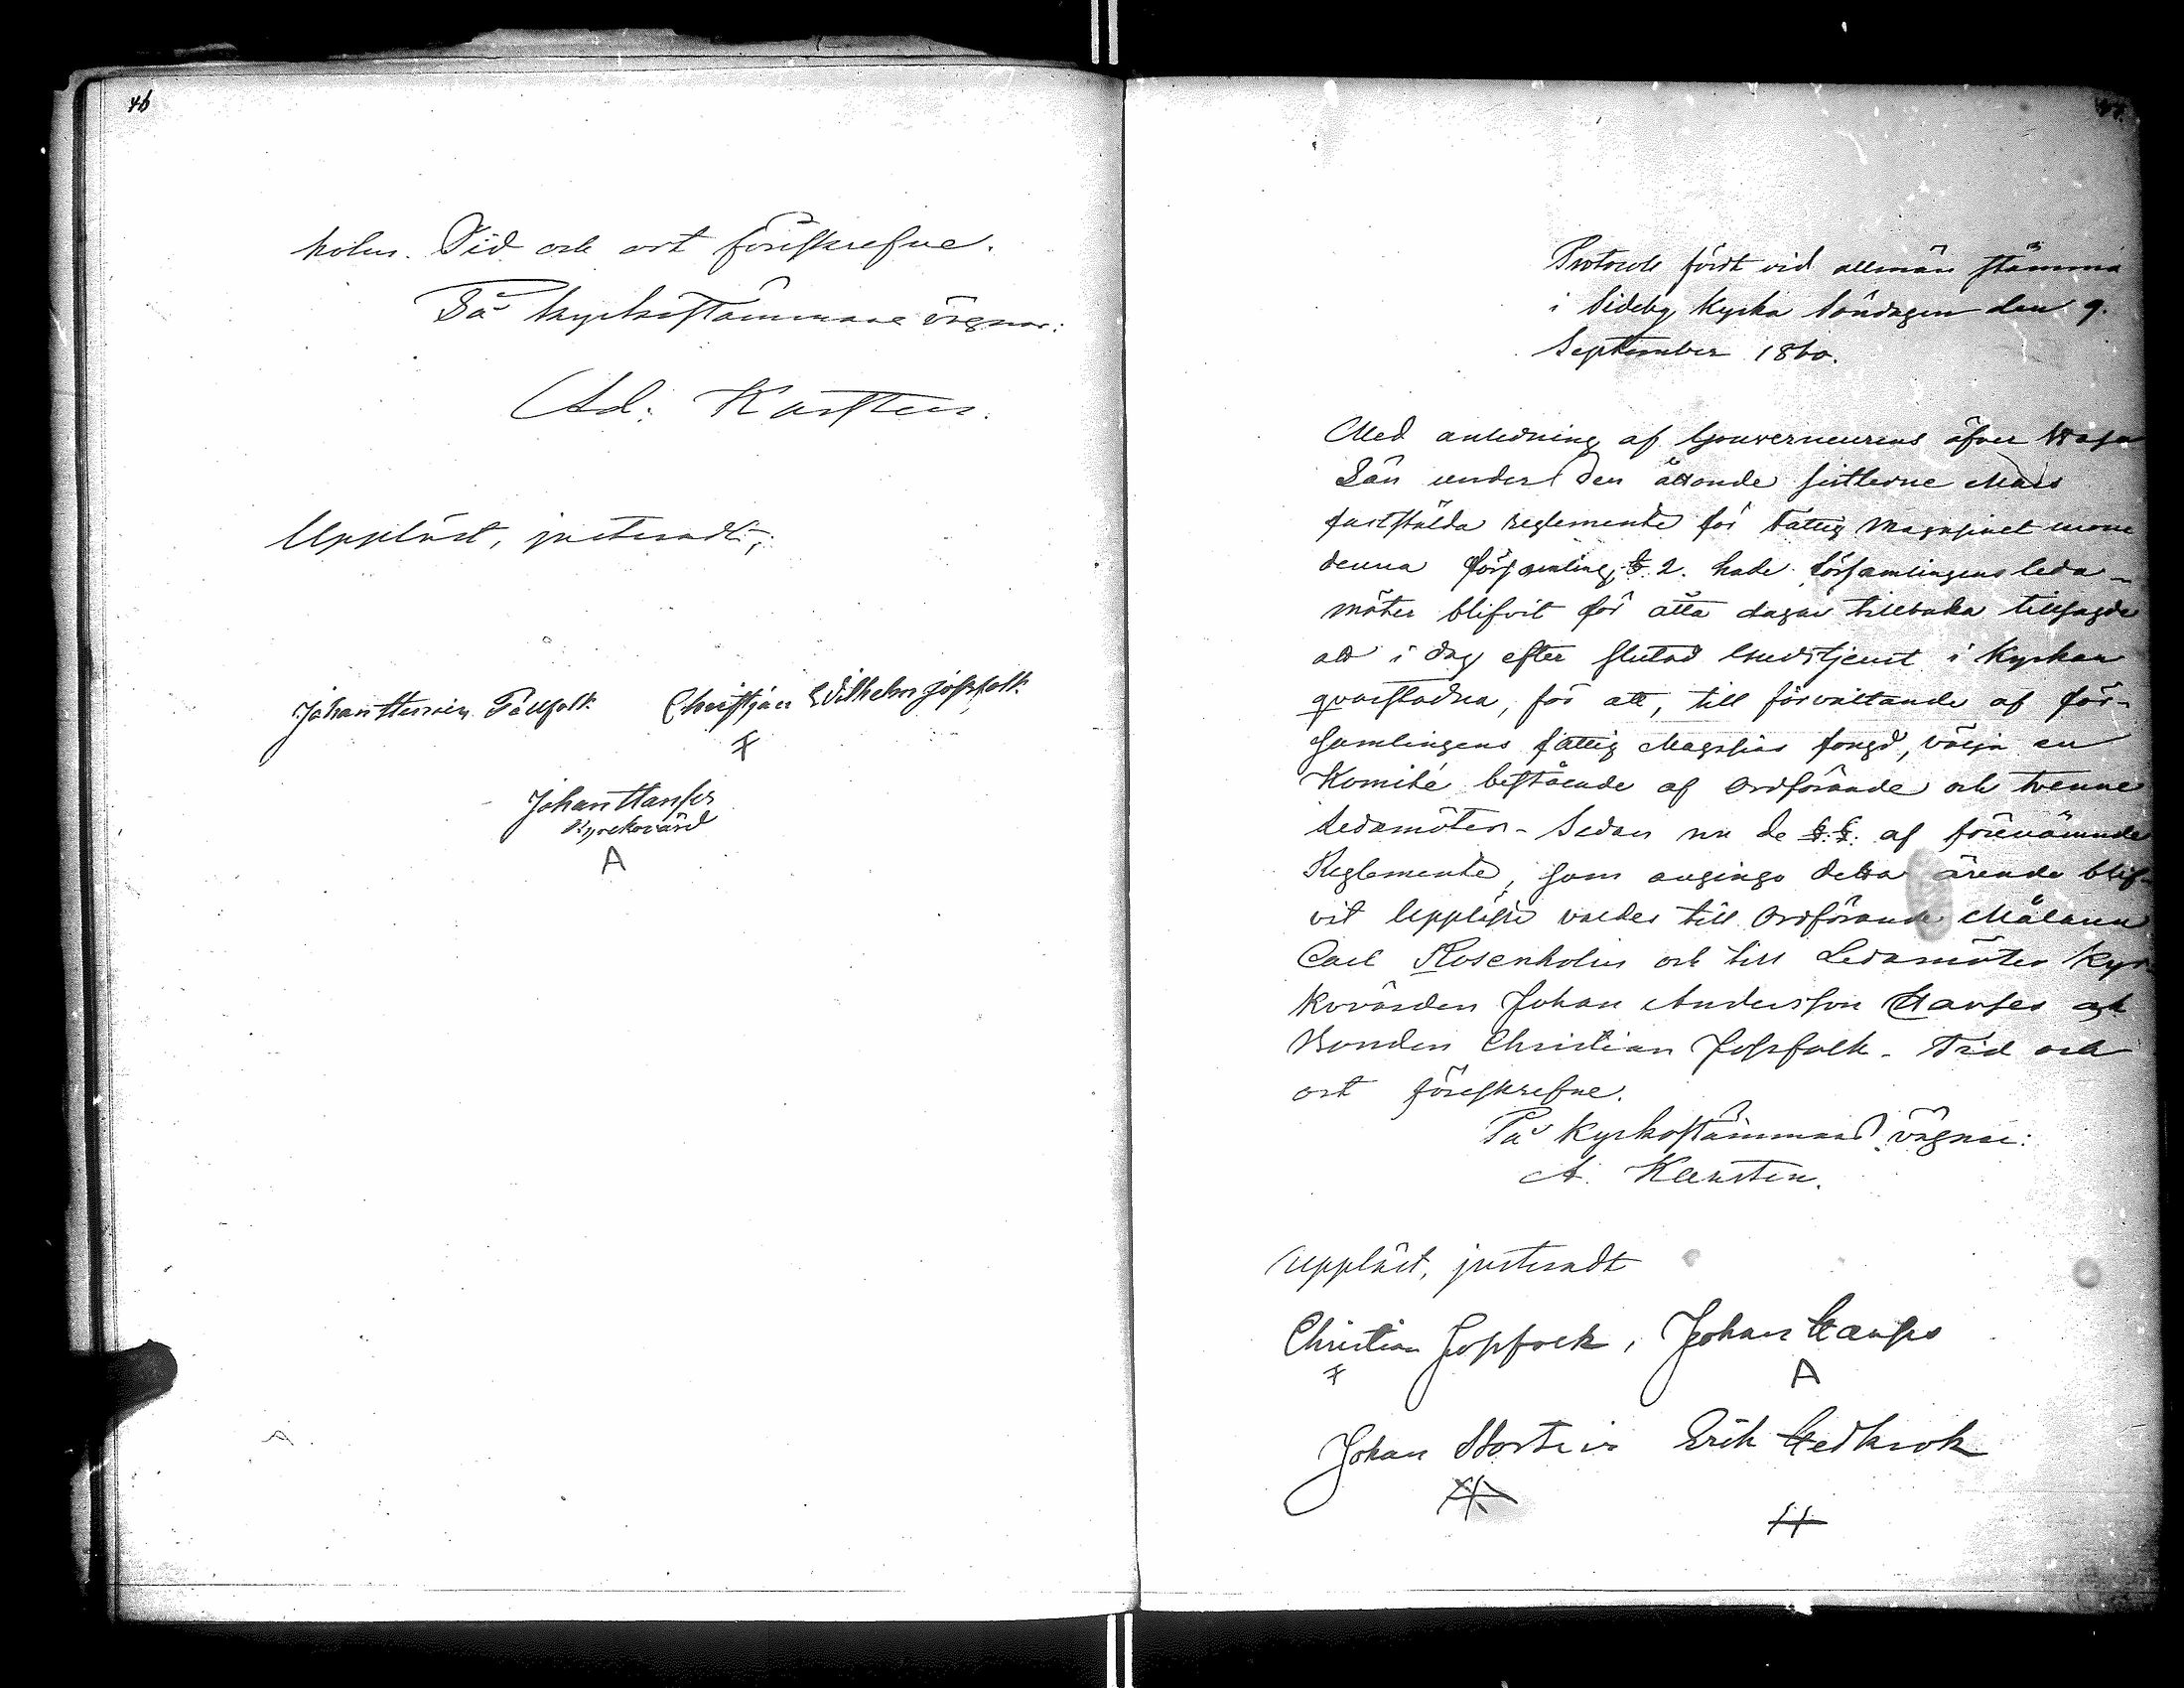 46
holm. Tid och ort föreskrefne.
På kyrkostämmans vägnar:
Ad. Karsten.
Uppläst, justeradt;
Johan Henrik Tållfolk Christjan Wilhelm Jossfolk
Johan Hanses
Kyrckovärd
A
47.
Protocoll fördt vid allmän stämma
i Sideby Kyrka Söndagen den 9.
September 1860.
Med anledning af Gouverneurens öfver Wasa
Län under den åttonde sistledne Mars
fastställda reglemente för Fattig Magasinet inom
denna församling, §. 2. hade församlingens leda-
möter blifvit för åtta dagar tillbaka tillsagde
att i dag efter slutad Gudstjenst i Kyrkan
qvarstadna, för att, till förvaltande af för-
samlingens fattig Magasins fongd, välja en
Komité bestående af Ordförande och tvenne
Ledamöter. Sedan nu de §.§. af förenämnde
Reglemente, som angingo detta ärende blif-
vit uppläste valdes till Ordförande Målaren
Carl Rosenholm och till Ledamöter Kyr-
kovärden Johan Andersson Hanses och
Bonden Christian Jossfolk. Tid och
ort föreskrefne.
På Kyrkostämmans vägnar:
A. Karsten.
Uppläst, justeradt
Christian Jossfolk, Johan Hanses
A
Johan Erik
H